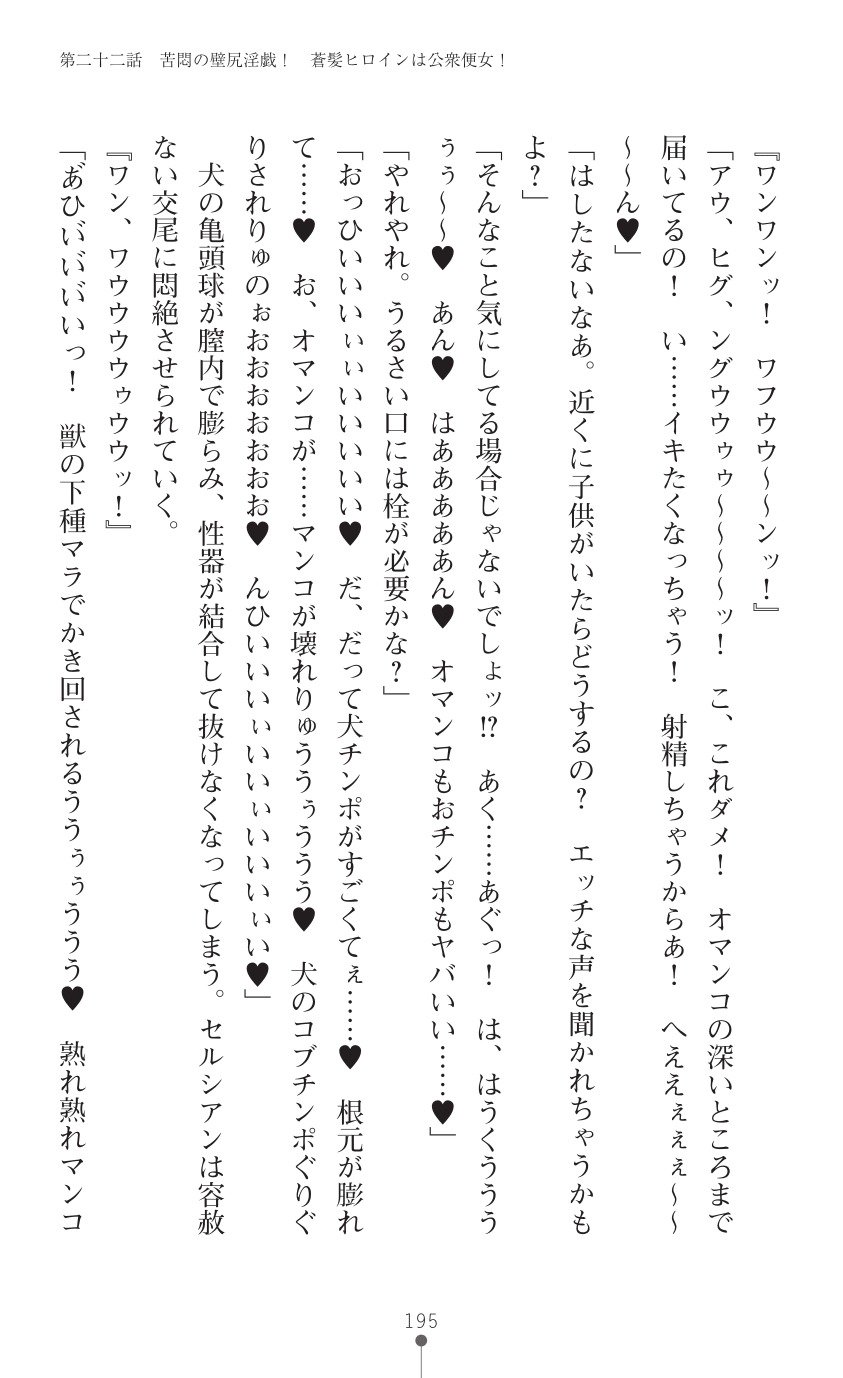 第二十二話　苦悶の壁尻淫戯！　蒼髪ヒロインは公衆便女！
『ワンワンッ！　ワフウウ～～ンッ！』
「アウ、ヒグ、ングウウゥゥ～～～～ッ！　こ、これダメ！　オマンコの深いところまで
届いてるの！　い……イキたくなっちゃう！　射精しちゃうからぁ！　へええぇぇぇ～～
～～ん♥」
「はしたないなあ。近くに子供がいたらどうするの？　エッチな声を聞かれちゃうかも
よ？」
「そんなこと気にしてる場合じゃないでしょッ!?　あく……あぐっ！　は、はうくううう
ぅぅ～～♥　あん♥　はああああぁん♥　オマンコもおチンポもヤバいい……♥」
「やれやれ。うるさい口には栓が必要かな？」
「おっひいいいぃぃいいいいい♥　だ、だって犬チンポがすごくてぇ……♥　根元が膨れ
て……♥　お、オマンコが……マンコが壊れりゅううぅううう♥　犬のコブチンポぐりぐ
りされりゅのぉおおおおおおお♥　んひいいいぃいいぃいいいぃい♥」
　犬の亀頭球が膣内で膨らみ、性器が結合して抜けなくなってしまう。セルシアンは容赦
ない交尾に悶絶させられていく。
『ワン、ワウウウウゥウウッ！』
「あ゙ひい゙い゙い゙いっ！　獣の下種マラでかき回されるううぅぅううう♥　熟れ熟れマンコ
195